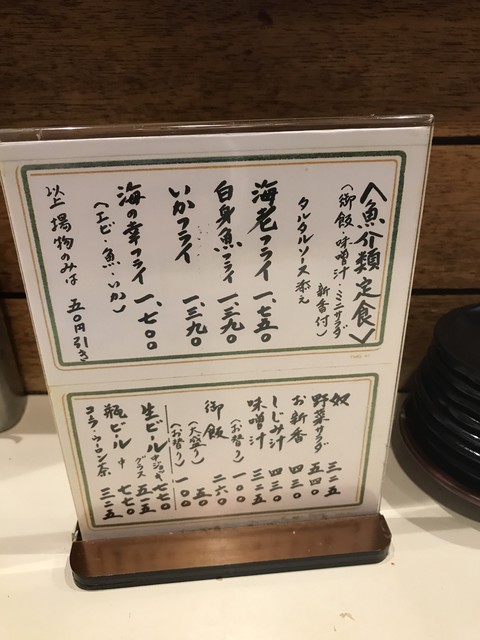 〈魚介類定食〉
(御飯・味噌汁・ミニサラダ
新香付)
タルタルソース添え
海老フライ 一、七五〇
白身魚フライ 一、三九〇
いかフライ 一、三九〇
海の幸フライ 一、七〇〇
(エビ・魚・いか)
以上 揚物のみは 五〇円引き
奴 三二五
野菜サラダ 五四〇
お新香 四三〇
しじみ汁 四三〇
味噌汁 三二五
(お替り) 一〇〇
御飯 二六〇
(大盛り) 五〇
(お替り) 一〇〇
生ビール 中ジョッキ 七七〇
グラス 五一五
瓶ビール 中 七七〇
コーラ ウーロン茶 三二五